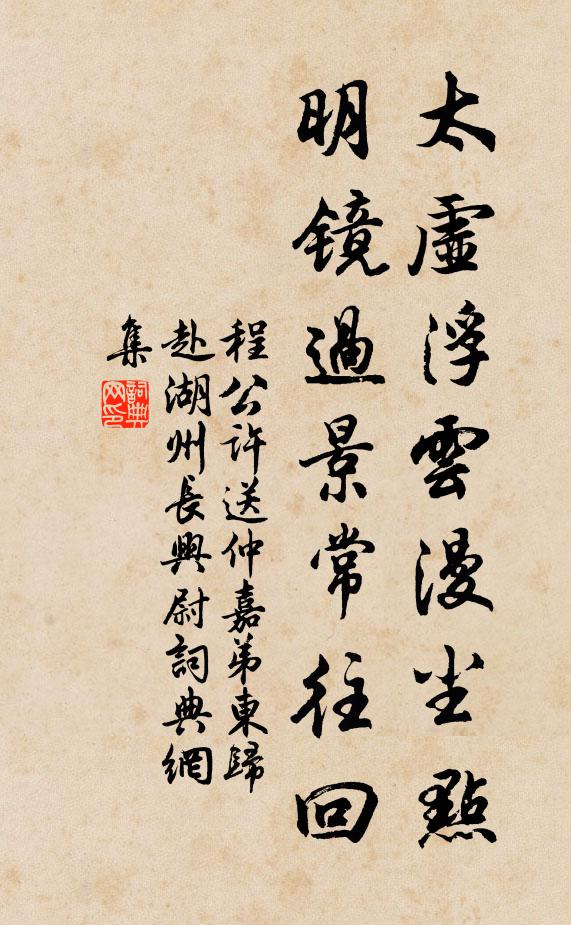 太虛浮雲漫尘點
明鏡過景常往回
程公許送仲嘉弟東歸
赴湖州長興尉詞典網
集
詞典
网印